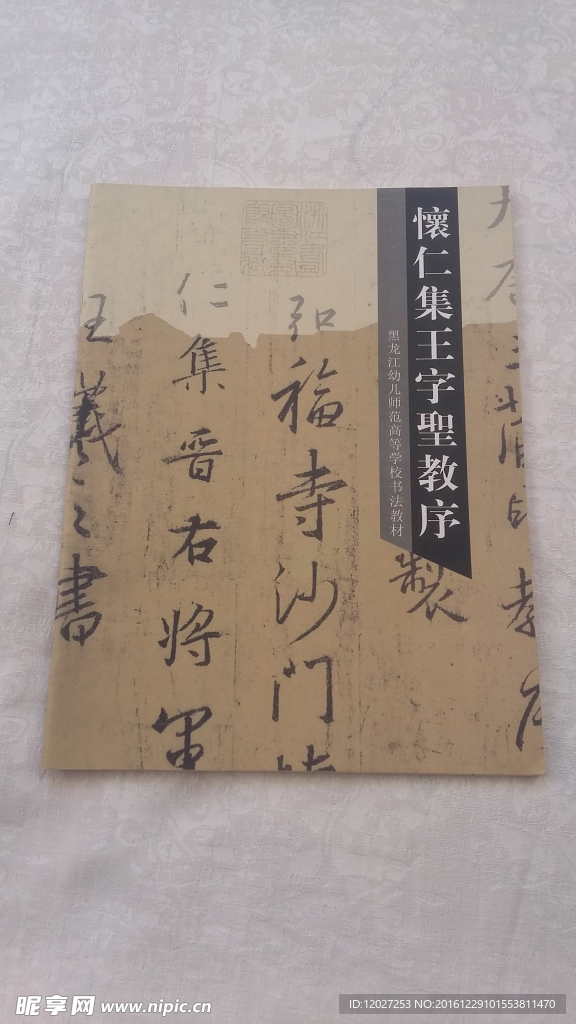 懷仁集王字聖教序
黑龙江幼儿师范高等学校书法教材
製
弘福寺沙門
仁集晋右将軍
王羲之書
昵享网 www.nipic.cn
ID:12027253 NO:20161229101553811470